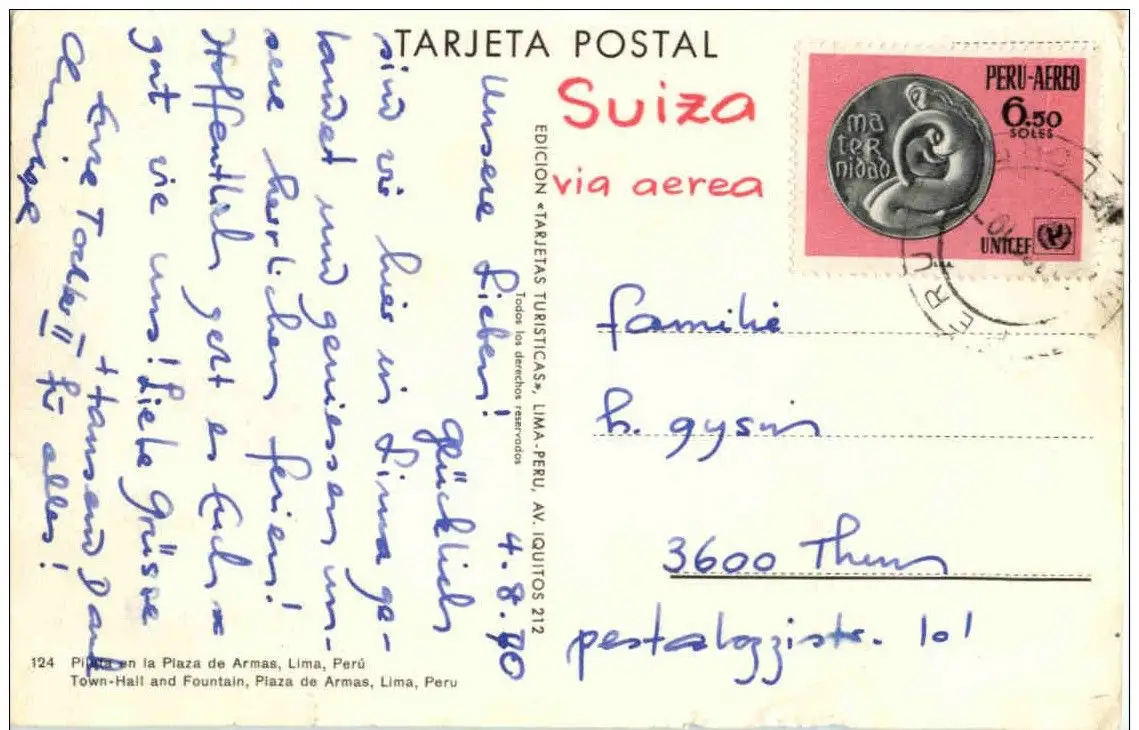 TARJETA POSTAL
Suiza
via aerea
PERU-AEREO
6.50
SOLES
ma
ter
nidad
UNICEF
PERU
EDICION «TARJETAS TURISTICAS», LIMA-PERU, AV. IQUITOS 212
Todos los derechos reservados
4.8.70
Unsere Lieben!
Glücklich
sind wir hier in Lima ge-
landet und geniessen un-
sere herrlichen Ferien!
Hoffentlich geht es Euch so
gut wie uns! Liebe Grüsse
Eure Tochter II
+ tausend Dank
für alles!
familie
h. gysin
3600 Thun
pestalozzistr. 101
124 Pileta en la Plaza de Armas, Lima, Perú
Town-Hall and Fountain, Plaza de Armas, Lima, Peru